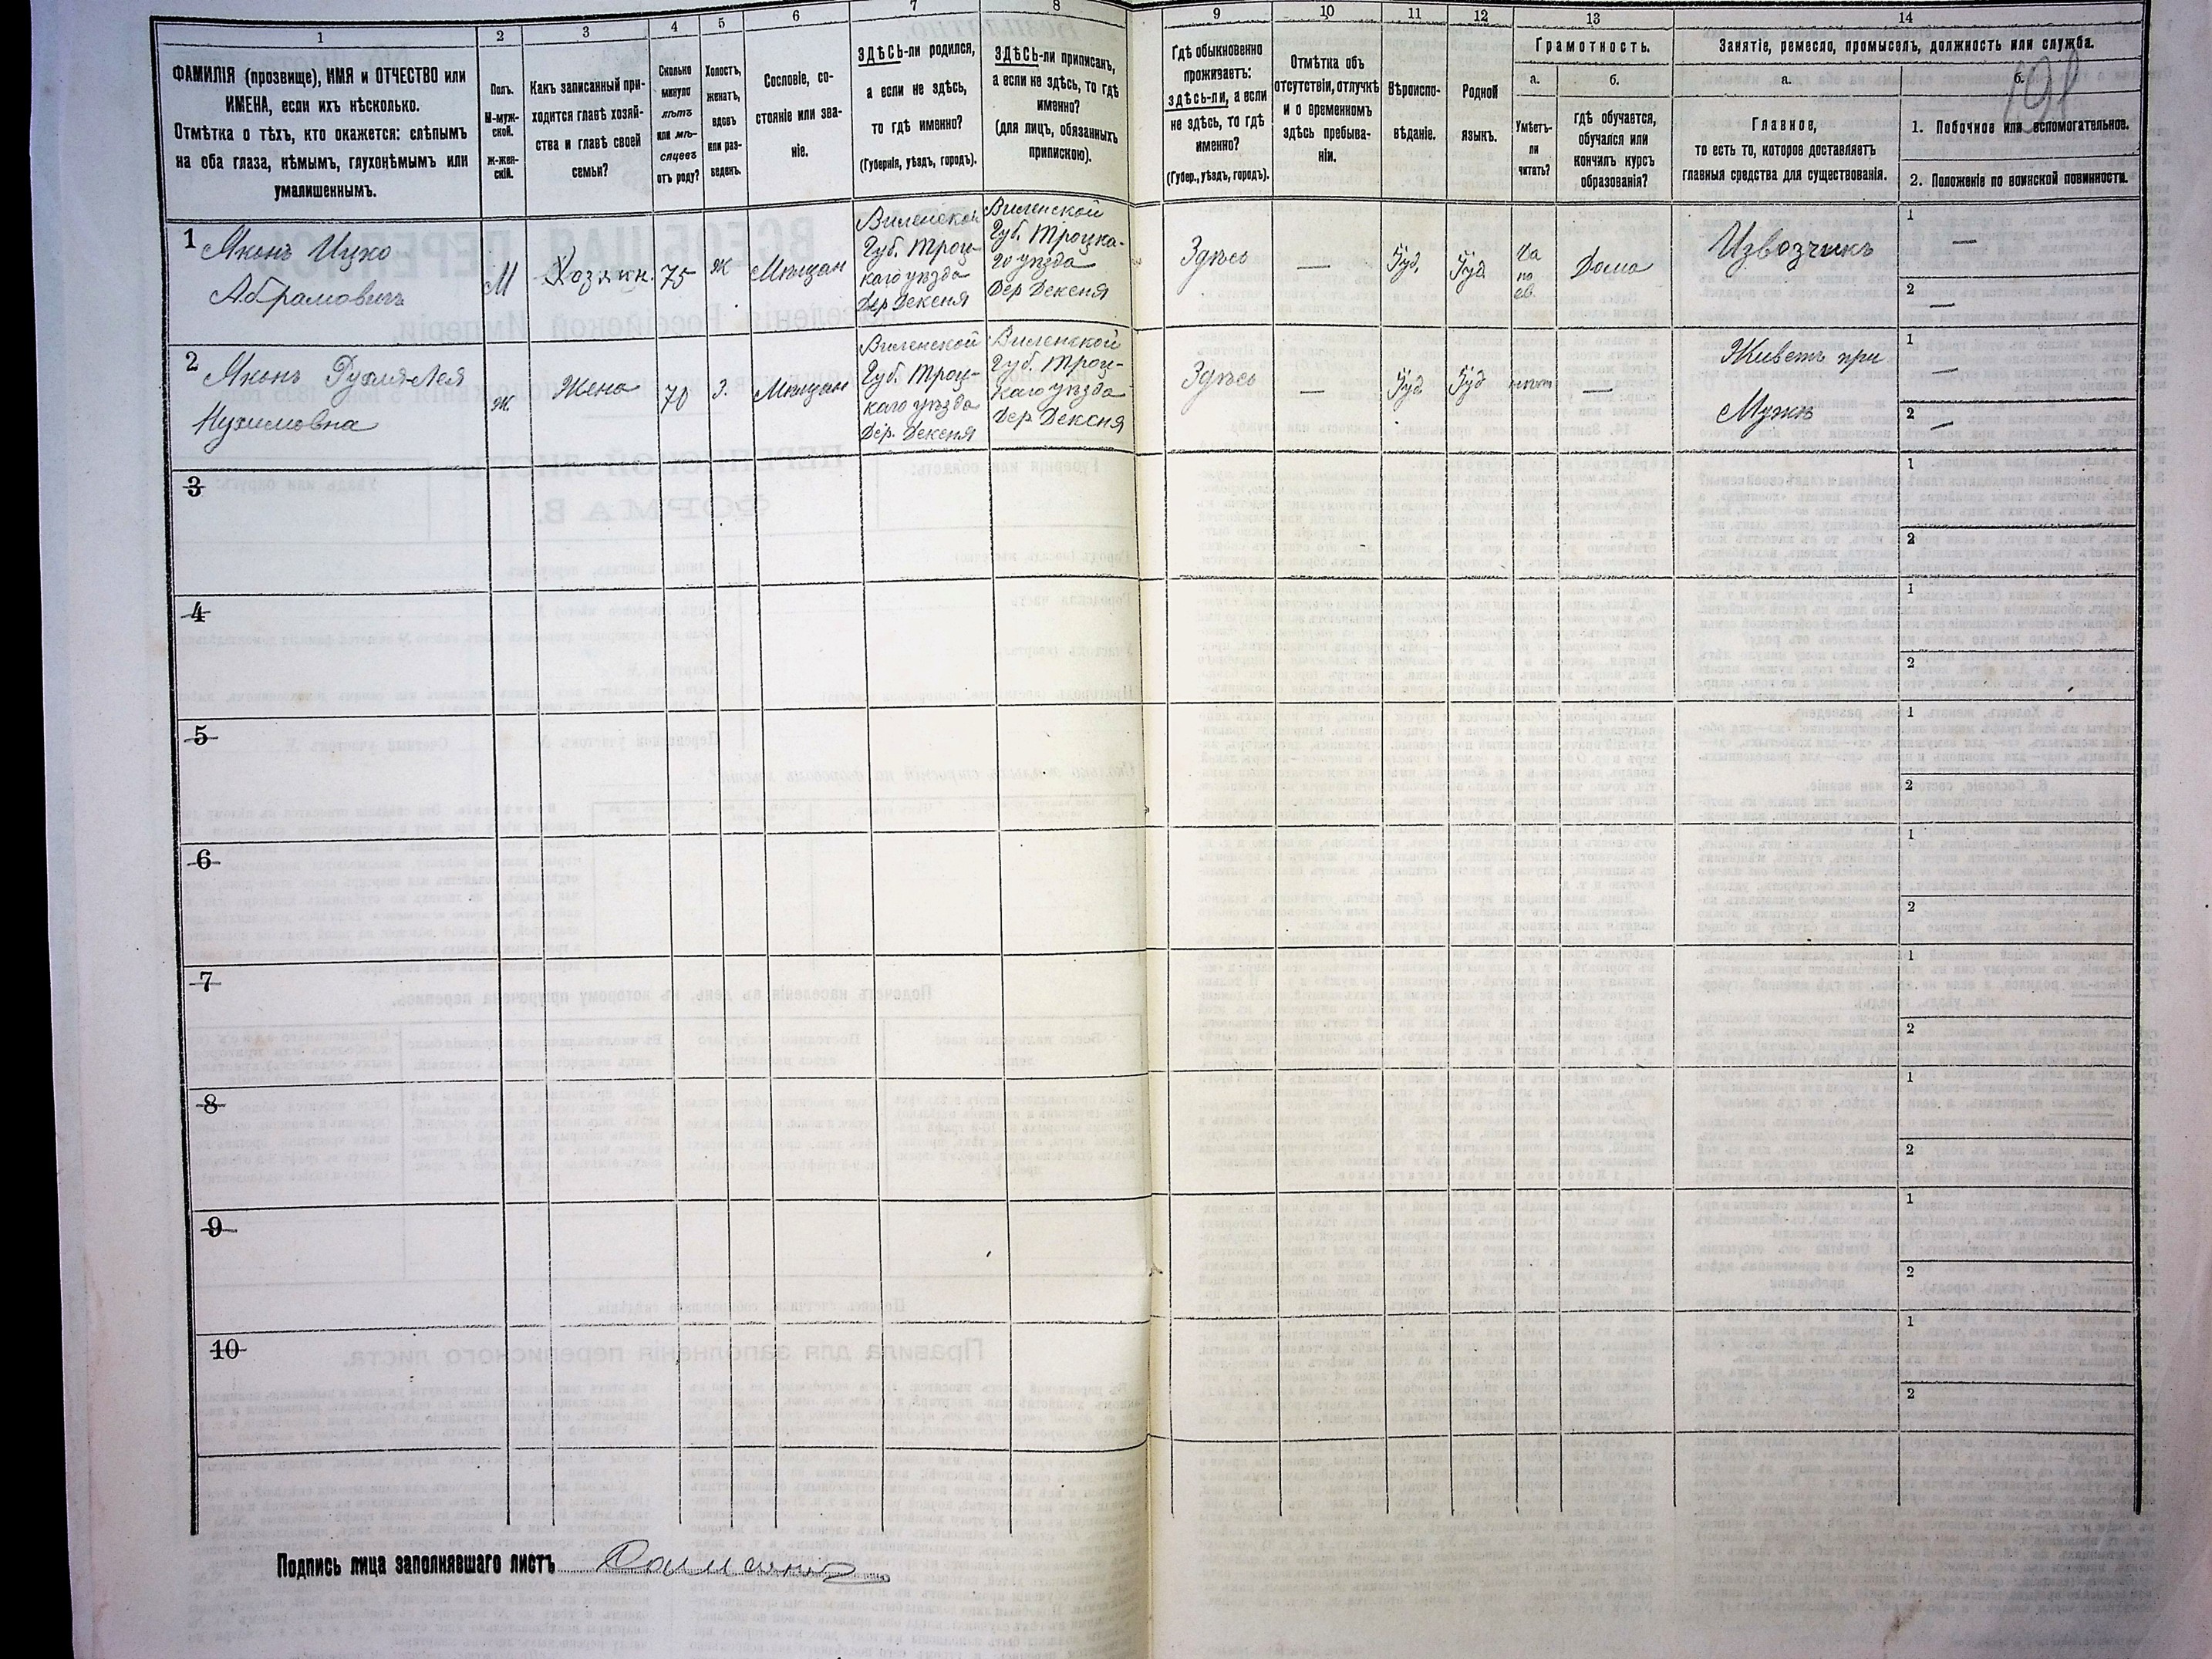 1
2
3
4
5
6
7
8
9
10
11
12
13
14
ФАМИЛІЯ (прозвище), ИМЯ и ОТЧЕСТВО или
ИМЕНА, если ихъ нѣсколько.
Отмѣтка о тѣхъ, кто окажется: слѣпымъ
на оба глаза, нѣмымъ, глухонѣмымъ или
умалишеннымъ.
Полъ.
М-муж-
ской.
Ж-жен-
скій.
Какъ записанный при-
ходится главѣ хозяй-
ства и главѣ своей
семьи?
Сколько
минуло
лѣтъ
или мѣ-
сяцевъ
отъ роду?
Холостъ,
женатъ,
вдовъ
или раз-
веденъ.
Сословіе, со-
стояніе или зва-
ніе.
ЗДѢСЬ-ли родился,
а если не здѣсь,
то гдѣ именно?
(Губернія, уѣздъ, городъ).
ЗДѢСЬ-ли приписанъ,
а если не здѣсь, то гдѣ
именно?
(для лицъ, обязанныхъ
припискою).
Гдѣ обыкновенно
проживаетъ:
здѣсь-ли, а если
не здѣсь, то гдѣ
именно?
(Губер., уѣздъ, городъ).
Отмѣтка объ
отсутствіи, отлучкѣ
и о временномъ
здѣсь пребыва-
ніи.
Вѣроиспо-
вѣданіе.
Родной
языкъ.
Грамотность.
а.
б.
Умѣетъ-
ли
читать?
гдѣ обучается,
обучался или
кончилъ курсъ
образованія?
Занятіе, ремесло, промыселъ, должность или служба.
а.
б.
191
Главное,
то есть то, которое доставляетъ
главныя средства для существованія.
1. Побочное или вспомогательное.
2. Положеніе по воинской повинности.
1
Абрамовичъ
М
Хозяин.
75
Ж
Мѣщан
Виленской
Губ. Троц-
каго уѣзда
Дер Дексня
Виленской
Губ. Троцка-
го уѣзда
Дер Дексня
Здѣсь
—
Іуд.
Іуд
Да
по
ев.
Дома
Извозчикъ
1
—
2
—
2
Нухимовна
Ж
Жена
70
З.
Мѣщан
Виленской
Губ. Троц-
каго уѣзда
Дер. Дексня
Виленской
Губ. Троц-
каго уѣзда
Дер Дексня
Здѣсь
—
Іуд
Іуд
нѣт
—
Живетъ при
Мужѣ
1
—
2
—
3
1
2
4
1
2
5
1
2
6
1
2
7
1
2
8
1
2
9
1
2
10
1
2
Подпись лица заполнявшаго листъ